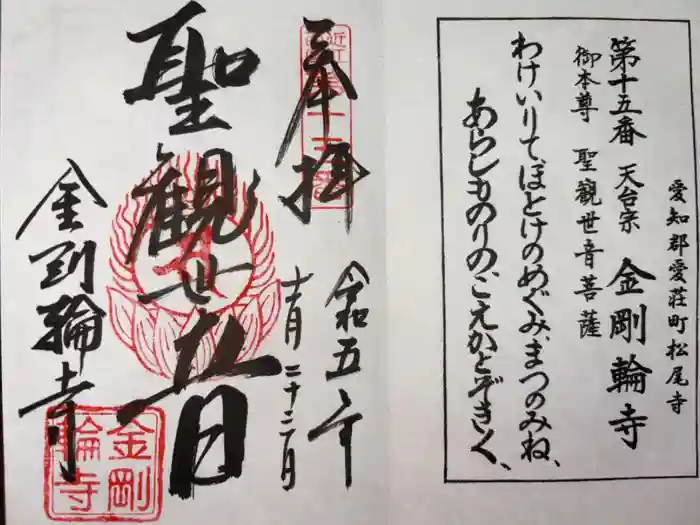 愛知郡愛荘町松尾寺
第十五番 天台宗 金剛輪寺
御本尊 聖觀世音菩薩
わけいりてほとけのめぐみまつのみね、
あらしものりのこえかとぞきく、
奉拝
令和五年
十一月二十二日
聖觀世音
金剛輪寺
金剛
輪寺